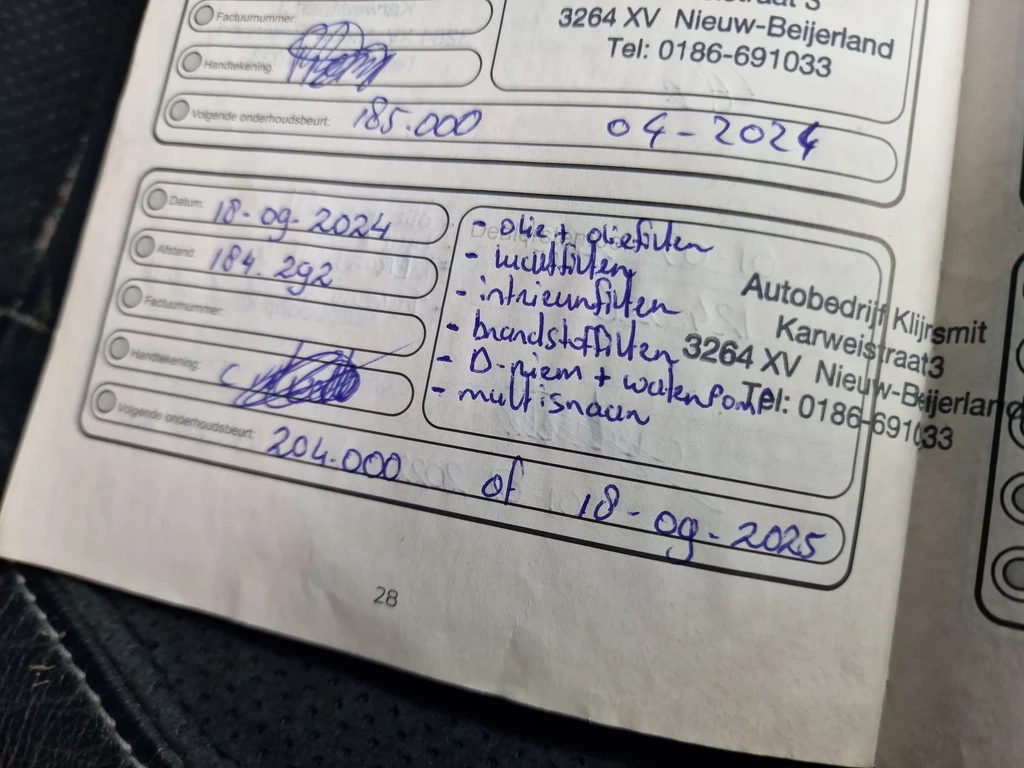 Factuurnummer:
Handtekening:
3264 XV Nieuw-Beijerland
Tel: 0186-691033
Volgende onderhoudsbeurt: 185.000 04-2024
Datum: 18-09-2024
Afstand: 184.292
Factuurnummer:
Handtekening:
- olie + oliefilter
- luchtfilter
- intrieurfilter
- brandstoffilter
- D-riem + waterpomp
- multisnaar
Autobedrijf Klijnsmit
Karweistraat3
3264 XV Nieuw-Beijerland
Tel: 0186-691033
Volgende onderhoudsbeurt: 204.000 of 18-09-2025
28